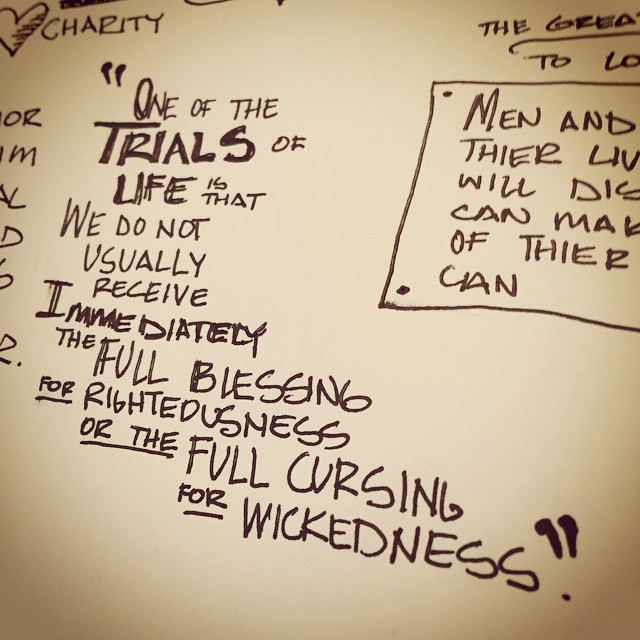 CHARITY
"ONE OF THE
TRIALS OF
LIFE IS THAT
WE DO NOT
USUALLY
RECEIVE
IMMEDIATELY
THE FULL BLESSING
FOR RIGHTEOUSNESS
OR THE FULL CURSING
FOR WICKEDNESS".
THE GREA
TO LO
MEN AND
THIER LIV
WILL DIS
CAN MAK
OF THIER
CAN